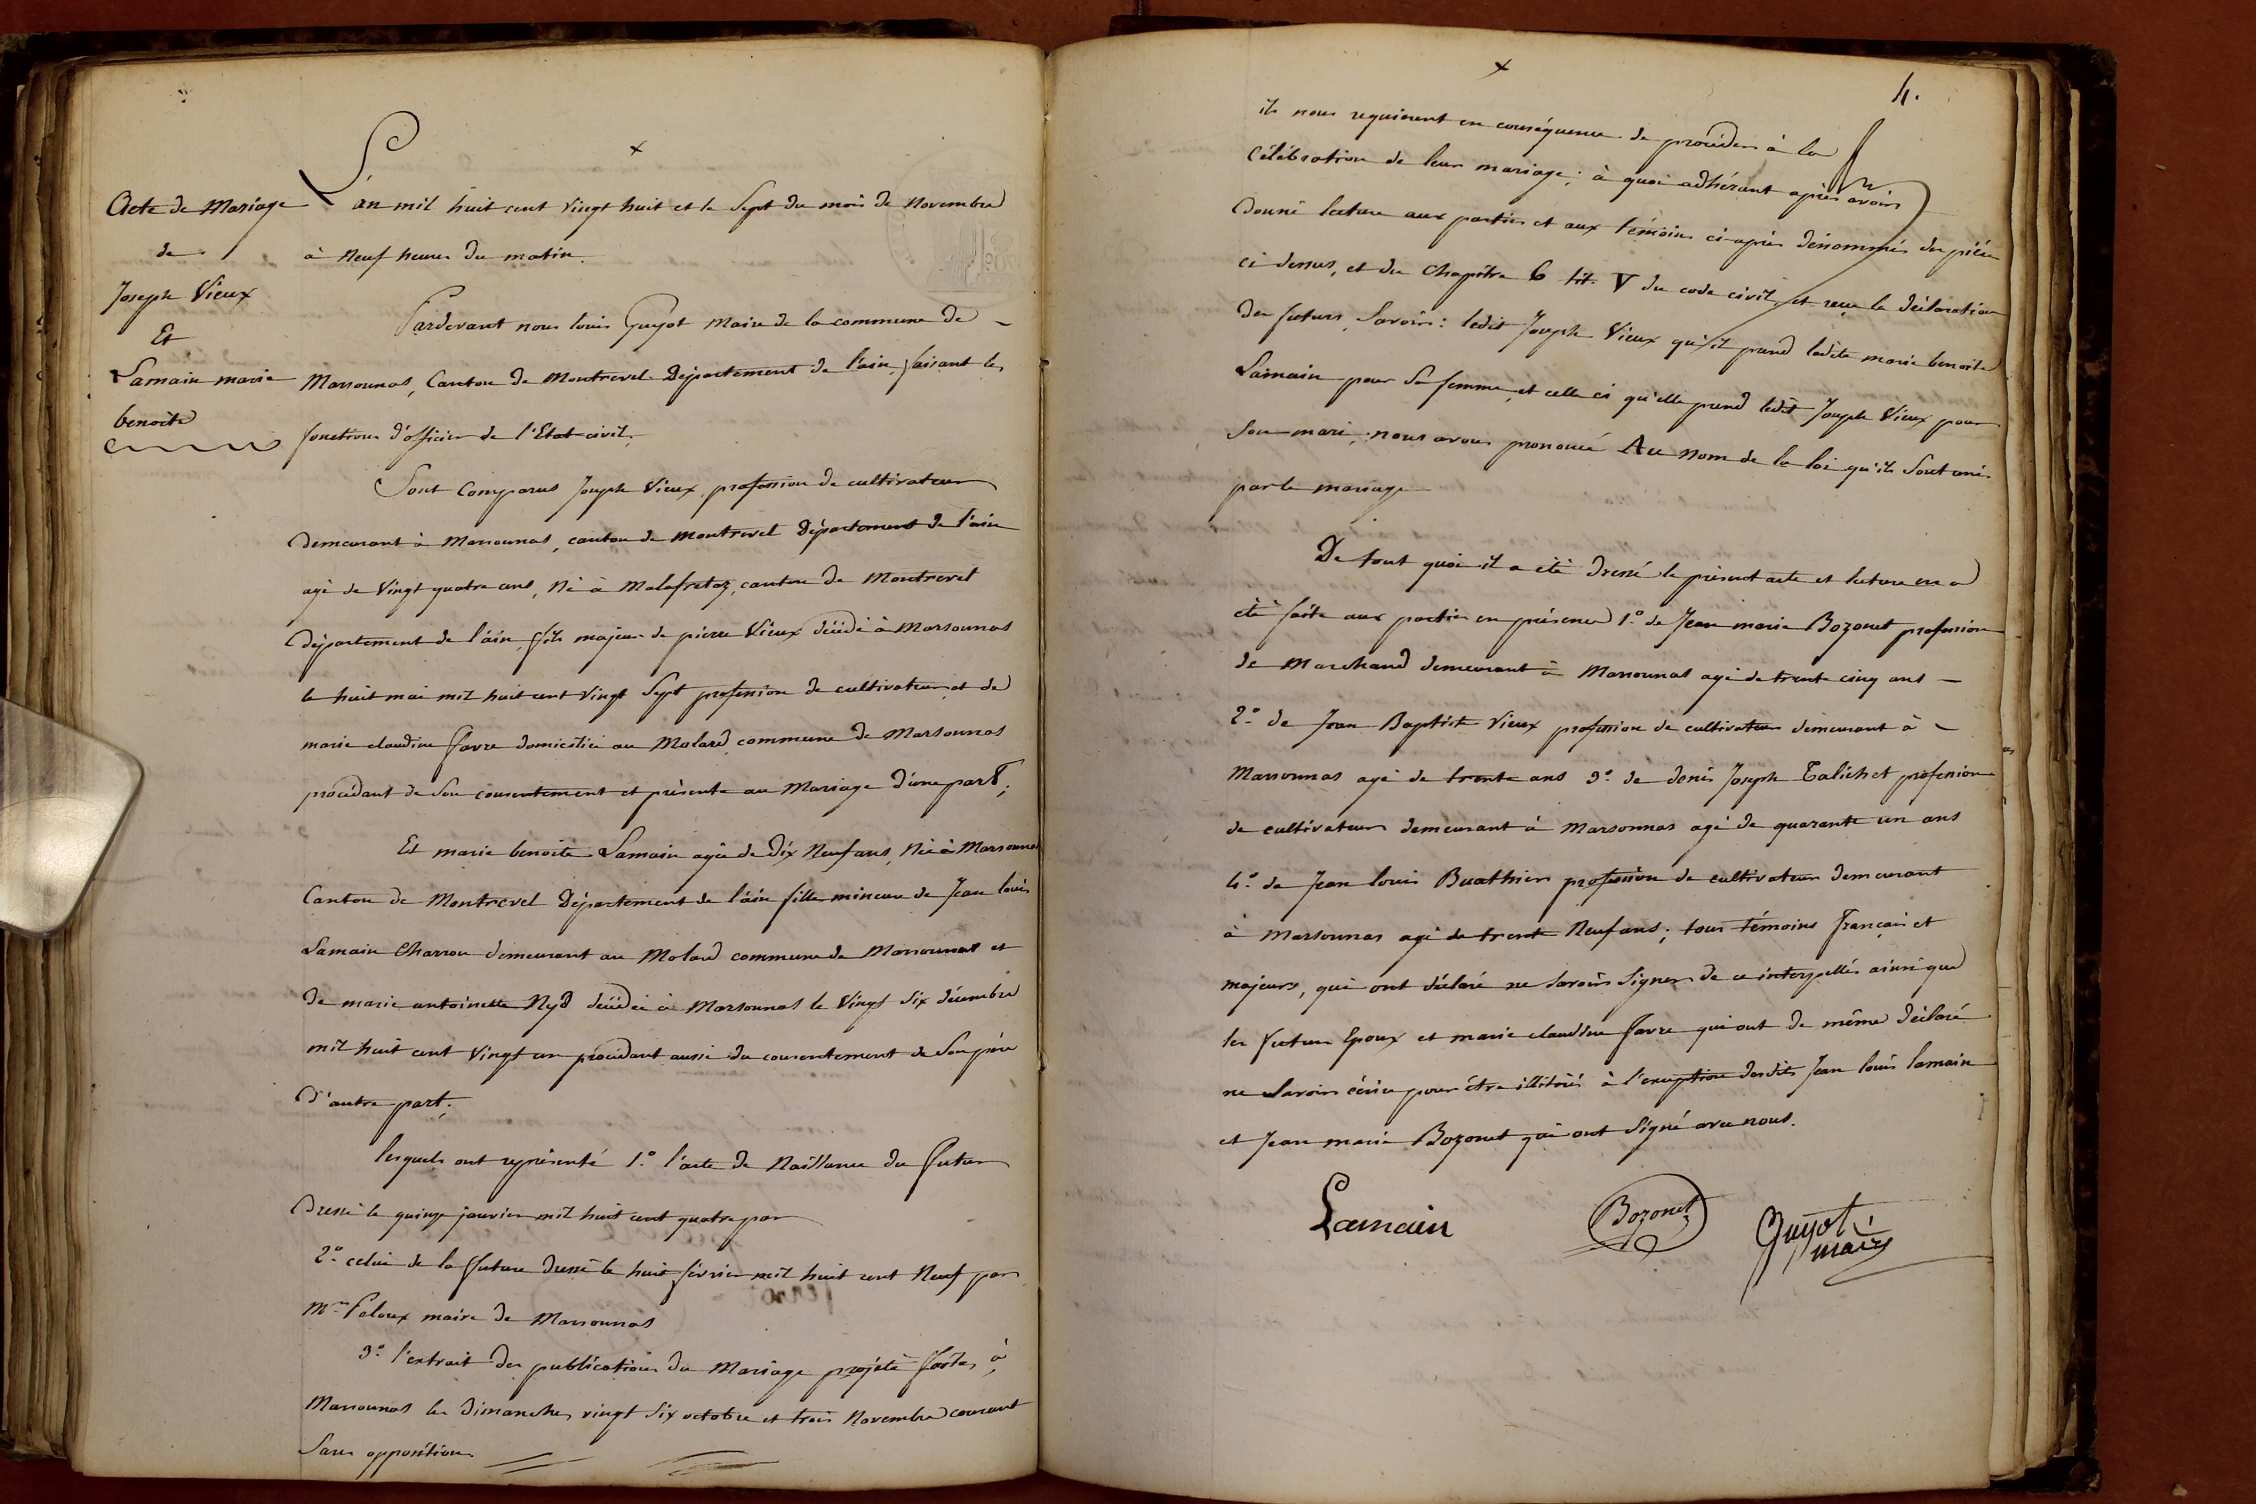 Acte de Mariage
de
Joseph Vieux
Et
Lamain marie
benoite
L'an mil huit cent vingt huit et le Sept du mois de Novembre
à Neuf heures du matin.
Pardevant nous louis Guyot Maire de la commune de
Marsonnas, Canton de Montrevel Département de l'ain, faisant les
fonctions d'officier de l'Etat-civil.
Sont Comparus Joseph Vieux, profession de cultivateur
demeurant à Marsonnas, canton de Montrevel Département de l'ain
agé de Vingt quatre ans, Né à Malafretaz, canton de Montrevel
département de l'ain, fils majeur de pierre Vieux décédé à Marsonnas
le huit mai mil huit cent vingt Sept profession de cultivateur et de
marie claudine favre domiciliée au Molard commune de Marsonnas
procédant de Son consentement et présente au Mariage d'une part;
Et marie benoite Lamain agée de Dix Neuf ans, Née à Marsonnas
Canton de Montrevel Département de l'ain fille mineure de Jean louis
Lamain Charron demeurant au Molard commune de Marsonnas et
de marie antoinette Nyd décédée à Marsonnas le Vingt Six décembre
mil huit cent Vingt un procédant aussi du consentement de Son père
d'autre part;
lesquels ont représenté 1.o l'acte de Naissance du futur
dressé le quinze janvier mil huit cent quatre par
2.o celui de la future dressé le huit février mil huit cent Neuf par
Mr. Peloux maire de Marsonnas
3.o l'extrait des publications du Mariage projété faites à
Marsonnas les Dimanches vingt Six octobre et trois Novembre courant
Sans opposition
4.
ils nous requièrent en conséquence de procéder à la
Célébration de leur mariage; à quoi adhérant après avoir
donné lecture aux parties et aux témoins ci-après dénommés des pièces
ci dessus, et du Chapitre 6 tit. V du code civil, et reçu la déclaration
des futurs, Savoir: ledit Joseph Vieux qu'il prend ladite marie benoite
Lamain pour Sa femme, et celle ci qu'elle prend ledit Joseph Vieux pour
Son mari; nous avons prononcé Au Nom de la loi qu'ils Sont unis
par le mariage
De tout quoi il a été dressé le présent acte et lecture en a
été faite aux parties en présence 1.o de Jean marie Bozonet profession
de Marchand demeurant à Marsonnas agé de trente cinq ans
2.o de Jean Baptiste Vieux profession de cultivateur demeurant à
Marsonnas agé de trente ans 3.o de denis Joseph Talichet profession
de cultivateur demeurant à Marsonnas agé de quarante un ans
4.o de Jean louis Buathier profession de cultivateur demeurant
à Marsonnas agé de trente Neuf ans; tous témoins français et
majeurs, qui ont déclaré ne Savoir Signer de ce interpellés ainsi que
les futurs Epoux et marie claudine favre qui ont de même déclaré
ne Savoir écrire pour être illitérés à l'exception desdits Jean louis lamain
et Jean marie Bozonet qui ont Signé avec nous.
Lamain
Bozonet
Guyot
maire